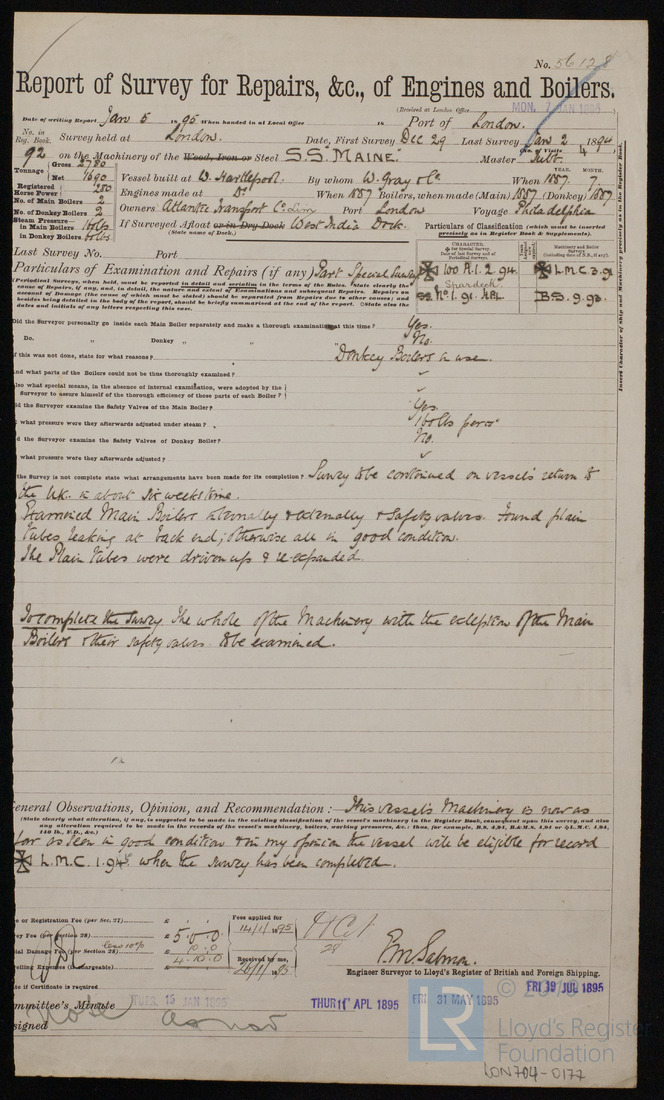 No. 56128
Report of Survey for Repairs, &c., of Engines and Boilers.
(Received at London Office MON. 7 JAN 1895
Date of writing Report Jan 5 1895 When handed in at Local Office 18 Port of London.
No. in Reg. Book. Survey held at London. Date, First Survey Dec 29 Last Survey Jan 2 1894
92 on the Machinery of the Wood, Iron or Steel S.S. "MAINE." No. of Visits 4 Master Tubb.
Tonnage Gross 2780
Net 1690
Vessel built at W. Hartlepool. By whom W. Gray & Co When 1887. YEAR. MONTH. 7
Registered Horse Power 250
Engines made at Do When 1887 Boilers, when made (Main) 1887 (Donkey) 1887
No. of Main Boilers 2
Owners Atlantic Transport Co. Lim Port London Voyage Philadelphia
No. of Donkey Boilers 2
Steam Pressure in Main Boilers 160 lbs
in Donkey Boilers 60 lbs
If Surveyed Afloat or in Dry Dock West India Dock.
(State name of Dock.)
Particulars of Classification (which must be inserted precisely as in Register Book & Supplements).
Last Survey No. Port
CHARACTER. for Special Survey Date of last Survey and of Periodical Surveys.
Machinery and Boiler Surveys (including date of N.B., if any).
Particulars of Examination and Repairs (if any) Part Special Survey
100 A.1. 2.94.
Spardeck.
SS No 1. 91. APL
L.M.C. 3.91
B.S. 9.93.
Periodical Surveys, when held, must be reported in detail and seriatim in the terms of the Rules. State clearly the
cause of Repairs, if any, and, in detail, the nature and extent of Examinations and subsequent Repairs. Repairs on
account of Damage (the cause of which must be stated) should be separated from Repairs due to other causes; and
besides being detailed in the body of the report, should be briefly summarised at the end of the report. State also the
dates and initials of any letters respecting this case.
Insert Character of Ship and Machinery precisely as in the Register Book.
Did the Surveyor personally go inside each Main Boiler separately and make a thorough examination at this time? Yes.
Do. " Donkey " " " No.
If this was not done, state for what reasons? Donkey Boilers in use.
And what parts of the Boilers could not be thus thoroughly examined? "
Also what special means, in the absence of internal examination, were adopted by the
Surveyor to assure himself of the thorough efficiency of those parts of each Boiler? "
Did the Surveyor examine the Safety Valves of the Main Boiler? Yes.
what pressure were they afterwards adjusted under steam? 160 lbs per
Did the Surveyor examine the Safety Valves of Donkey Boiler? No.
what pressure were they afterwards adjusted? "
the Survey is not complete state what arrangements have been made for its completion? Survey to be continued on vessel's return to
the U.K. in about six weeks time.
Examined Main Boilers internally & externally & safety valves. Found plain
tubes leaking at back end; otherwise all in good condition.
The Plain tubes were driven up & re-expanded.
To complete the Survey The whole of the Machinery with the exception of the Main
Boilers & their safety valves to be examined.
General Observations, Opinion, and Recommendation:— This vessel's Machinery is now as
(State clearly what alteration, if any, is suggested to be made in the existing classification of the vessel's machinery in the Register Book, consequent upon this survey, and also
any alteration required to be made in the records of the vessel's machinery, boilers, working pressures, &c.: thus, for example, B.S. 4,94, B.&M.S. 4,94 or L.M.C. 4,94,
140 lb., F.D., &c.)
far as seen in good condition & in my opinion the vessel will be eligible for record
L.M.C. 1.95 when the survey has been completed.
or Registration Fee (per Sec. 27) £
Survey Fee (per Section 28) £ 5.0.0
less 10%
Special Damage Fee (per Section 28) £ 10.0
Travelling Expenses (if chargeable) £ 4.10.0
Fees applied for
14/1/1895
Received by me,
26/1/1895
F. M. Salmon.
Engineer Surveyor to Lloyd's Register of British and Foreign Shipping.
if Certificate is required
Committee's Minute TUES. 15 JAN 1895 THUR 11 APL 1895 FRI 31 MAY 1895 FRI 19 JUL 1895
Assigned as now
LR
Lloyd's Register
Foundation
LON704-0177